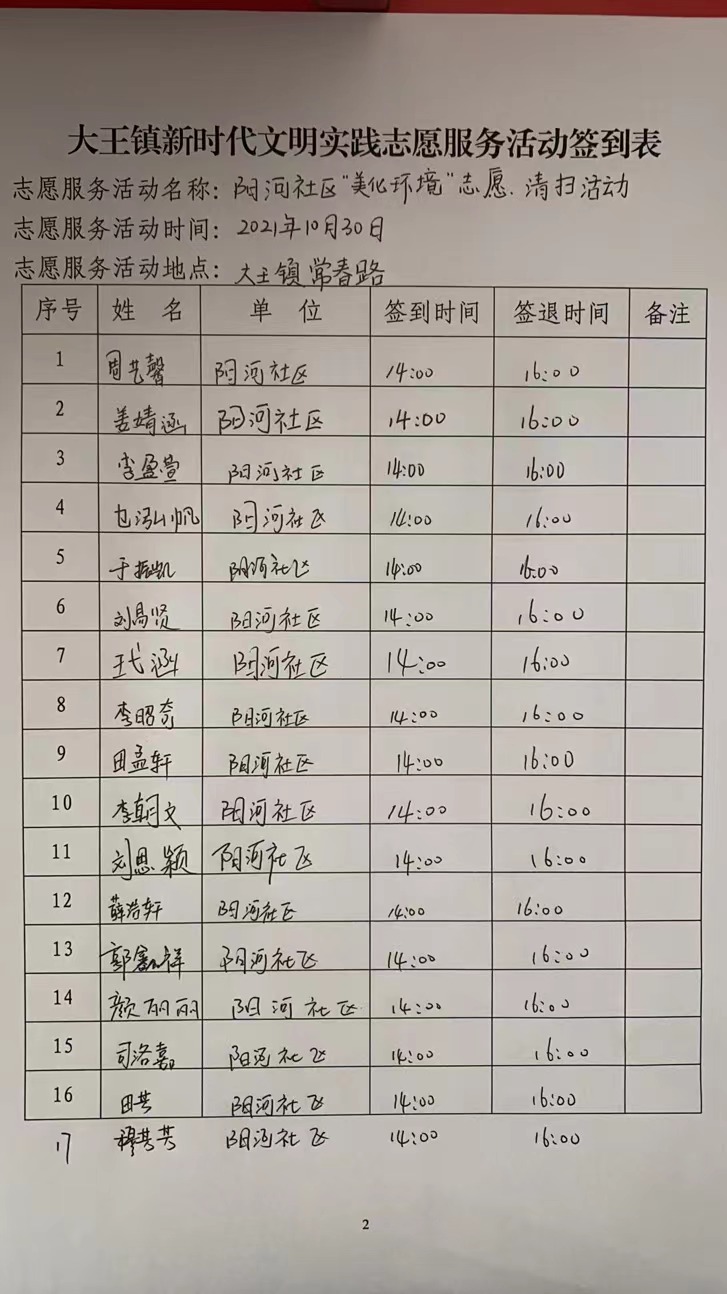 大王镇新时代文明实践志愿服务活动签到表
志愿服务活动名称：阳河社区“美化环境”志愿.清扫活动
志愿服务活动时间：2021年10月30日
志愿服务活动地点：大王镇常春路
序号 姓 名 单 位 签到时间 签退时间 备注
1 周艺馨 阳河社区 14:00 16:00
2 姜婧涵 阳河社区 14:00 16:00
3 李盈萱 阳河社区 14:00 16:00
4 阳河社区 14:00 16:00
5 于振凯 阳河社区 14:00 16:00
6 刘昌贤 阳河社区 14:00 16:00
7 王弋涵 阳河社区 14:00 16:00
8 李昭奇 阳河社区 14:00 16:00
9 田孟轩 阳河社区 14:00 16:00
10 李朝文 阳河社区 14:00 16:00
11 刘思颖 阳河社区 14:00 16:00
12 薛浩轩 阳河社区 14:00 16:00
13 郭鑫祥 阳河社区 14:00 16:00
14 颜丽丽 阳河社区 14:00 16:00
15 司洛嘉 阳河社区 14:00 16:00
16 田芸 阳河社区 14:00 16:00
17 阳河社区 14:00 16:00
2